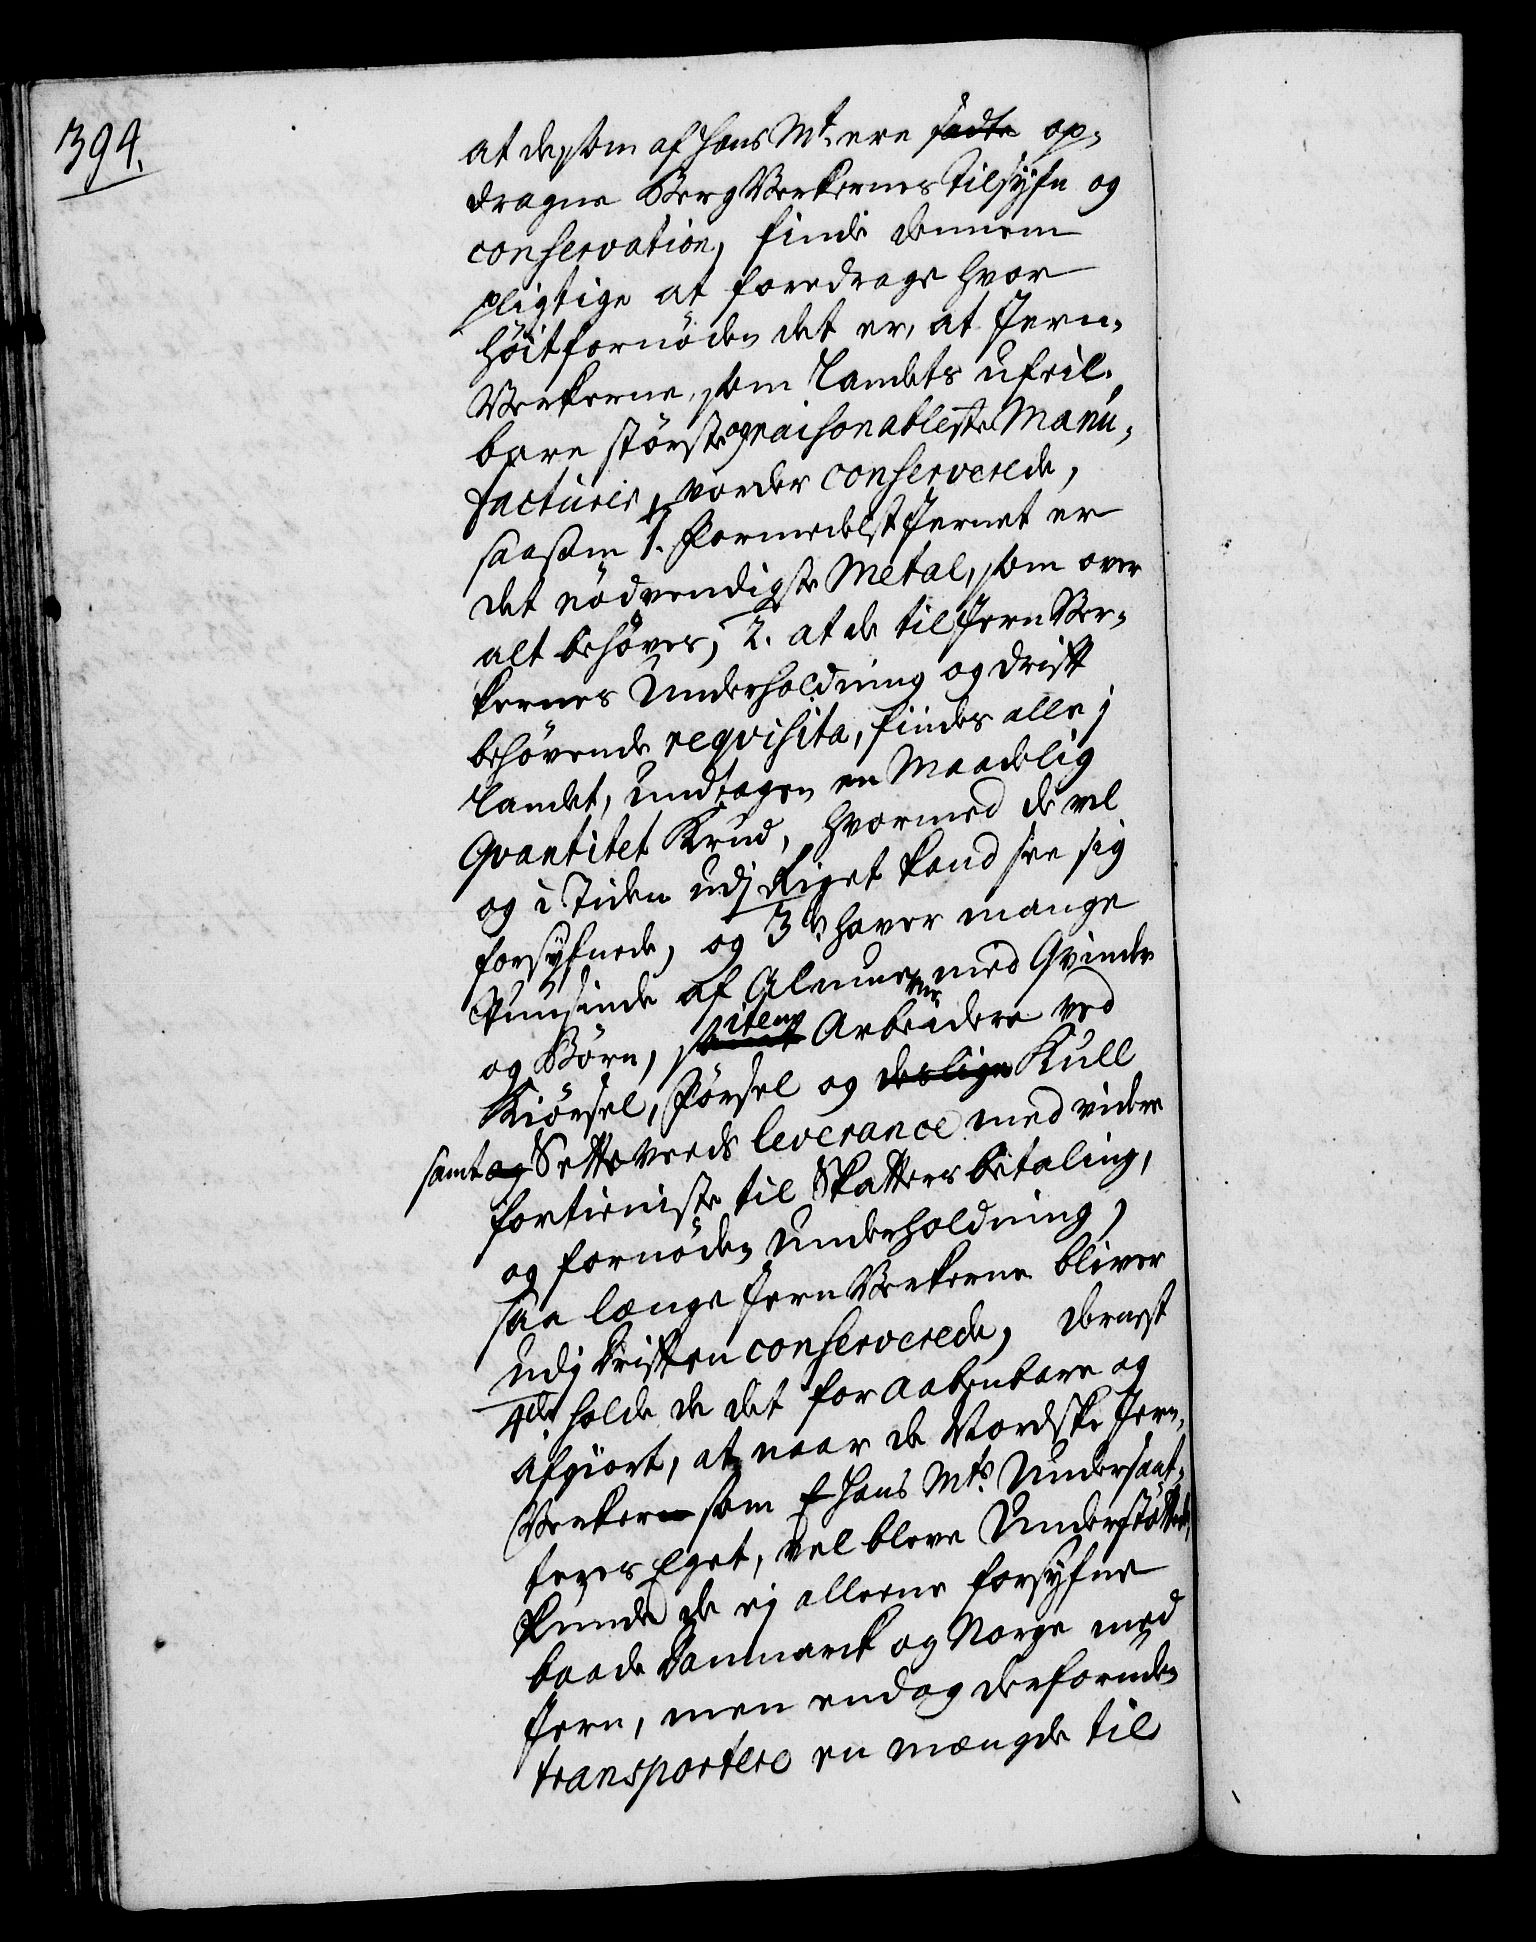 394.
at de, som af Hans Mt. ere sadte op-
dragne Berg Verkernes tilsyhn og
conservation, finde dennem
pligtige at foredrage hvor
høitfornøden det er, at Jern-
Verkerne, som Landets ufeil-
bare største og raisonableste Manu-
facturer, vorder conserverede,
saasom 1. formedelst Jernet er
det nødvendigste Metal, som over
alt behøves, 2. at de til Jern Ver-
kernes Underholdning og drift
behøvende reqvisita, findes alle j
Landet, undtagen en Maadelig
Qvantitet Krud, hvormed de vel
og i Tiden udj Riget kand see sig
forsyhnede, og 3de haver mange
Tuusinde af Almuen med Qvinder
og Børn, samt item Arbeidere ved
Kiørsel, Førsel og deslige Kull
samt og Setteveeds leverance med videre
fortieniste til Skatters betaling,
og fornøden Underholdning,
saa længe Jern Verkerne bliver
udj driften conserverede, dernest
4de holde de det for aabenbare og
afgiort, at naar de Nordske Jern-
Verker som Hans Mts. Undersaat-
ters Eget, vel bleve Understøttede,
kunde de ej alleene forsyhne
baade Danmarck og Norge med
Jern, men endog derforuden
transportere en mængde til